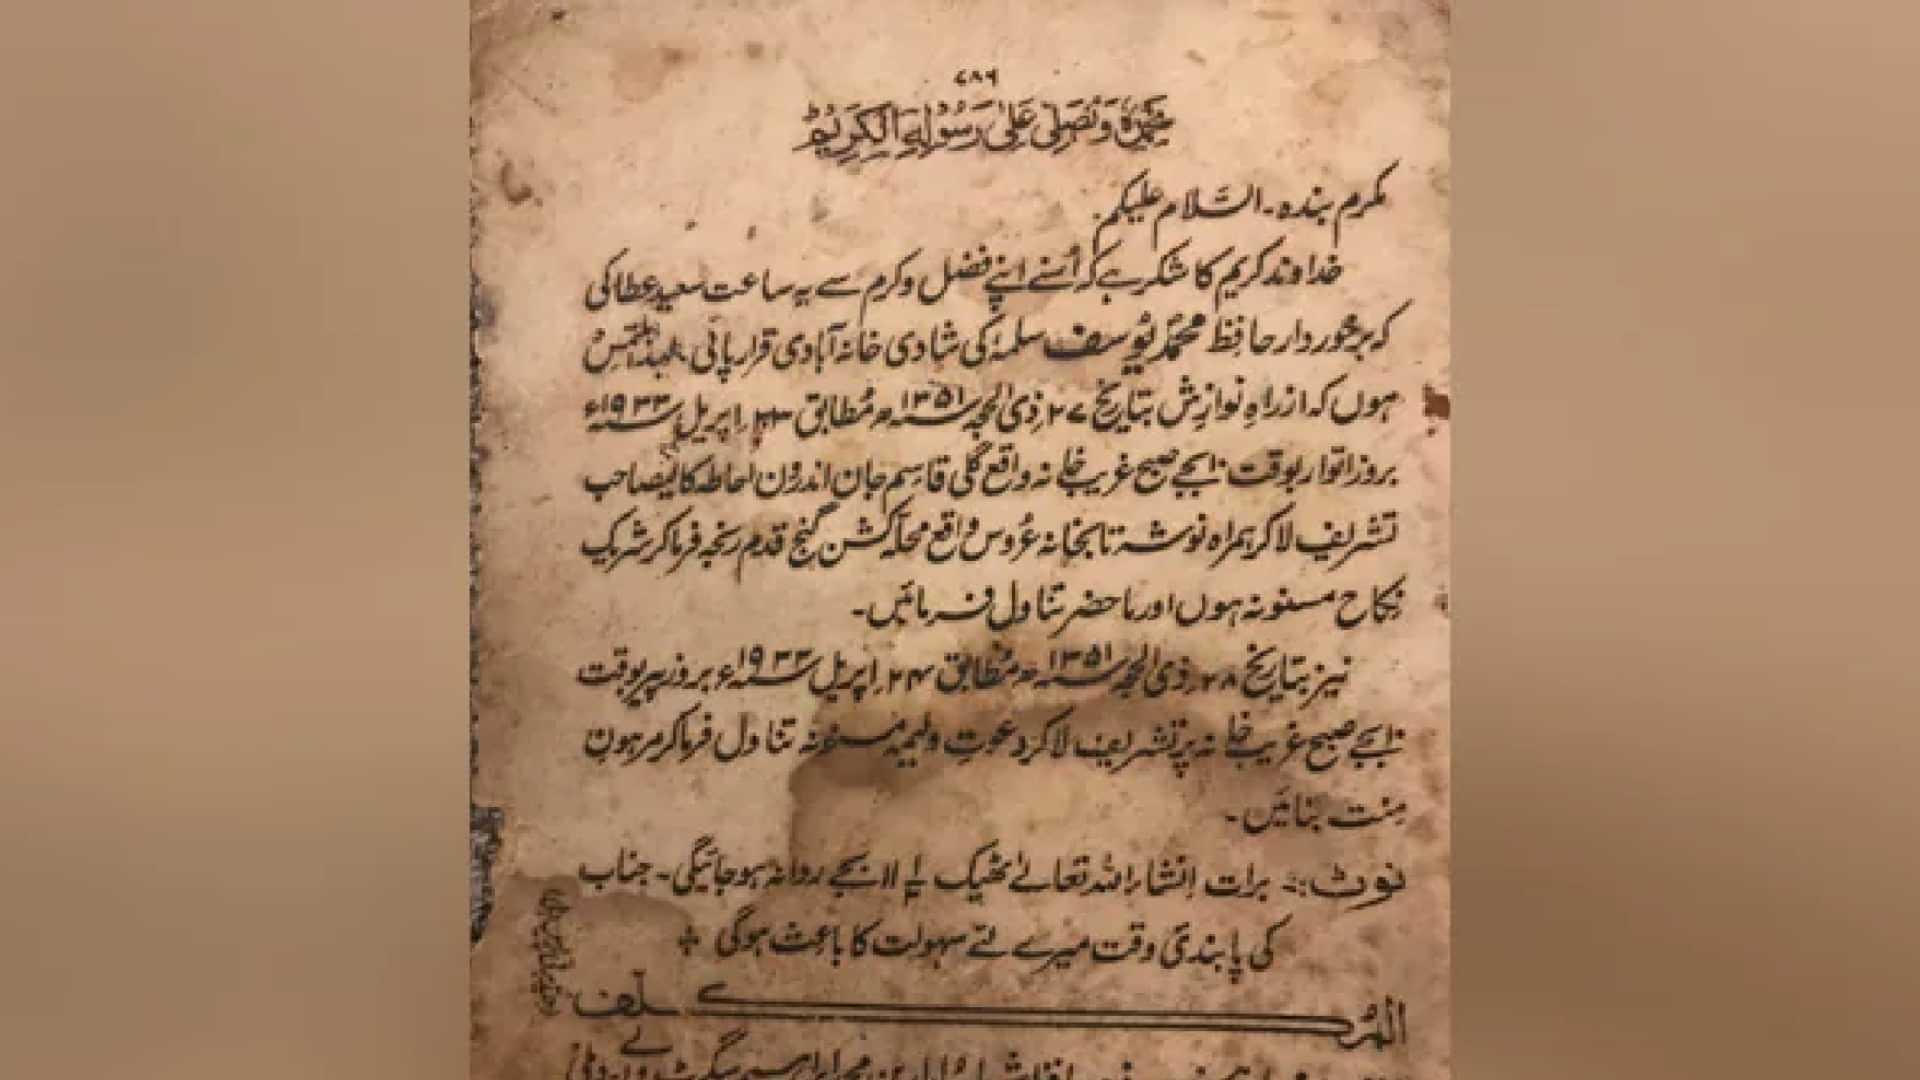 ۷۸۶
نحمدہٗ وَنُصَلِّی عَلیٰ رَسُوْلِہِ الْکَرِیْمْ
مکرم بندہ۔ السَّلام علیکم۔
خداوند کریم کا شکر ہے کہ اُسنے اپنے فضل وکرم سے یہ ساعت سعید عطا کی
کہ برخوردار حافظ محمدؐ یُوسف سلمہٗ کی شادی خانہ آبادی قرار پائی۔ لہذا ملتمس
ہوں کہ ازراہِ نوازِش بتاریخ ۲۷؍ذی الحجہ سنہ ۱۳۵۱ھ مُطابق ۲۳؍اپریل سنہ ۱۹۳۳ء
بروز اتوار بوقت ۱۰بجے صبح غریب خانہ واقع گلی قاسِم جان اندرُون احاطہ کالیصاحب
تشریف لاکر ہمراہ نوشہ تابخانہ عُروس واقع محلہ کشن گنج قدم رنجہ فرماکر شریک
نکاح مسنونہ ہوں اور ماحضر تناول فرمائیں۔
نیز بتاریخ ۲۸؍ذی الحجہ سنہ ۱۳۵۱ھ مُطابق ۲۴؍اپریل سنہ ۱۹۳۳ء بروز پیر بوقت
۱۰بجے صبح غریب خانہ پر تشریف لاکر دعوتِ ولیمہ مسنونہ تناول فرماکر مرہون
مِنت بنائیں۔
نوٹ:۔ برات اِنشاءاللہ تعالےٰ ٹھیک ۱۱ بجے روانہ ہوجائیگی۔ جناب
کی پابندی وقت میرے لئے سہولت کا باعث ہوگی
المُکلّف